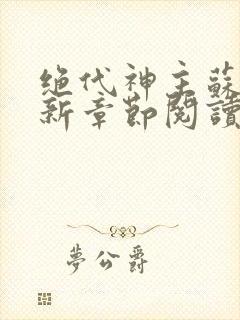 绝代神主蘇
新章節閱讀
夢公爵